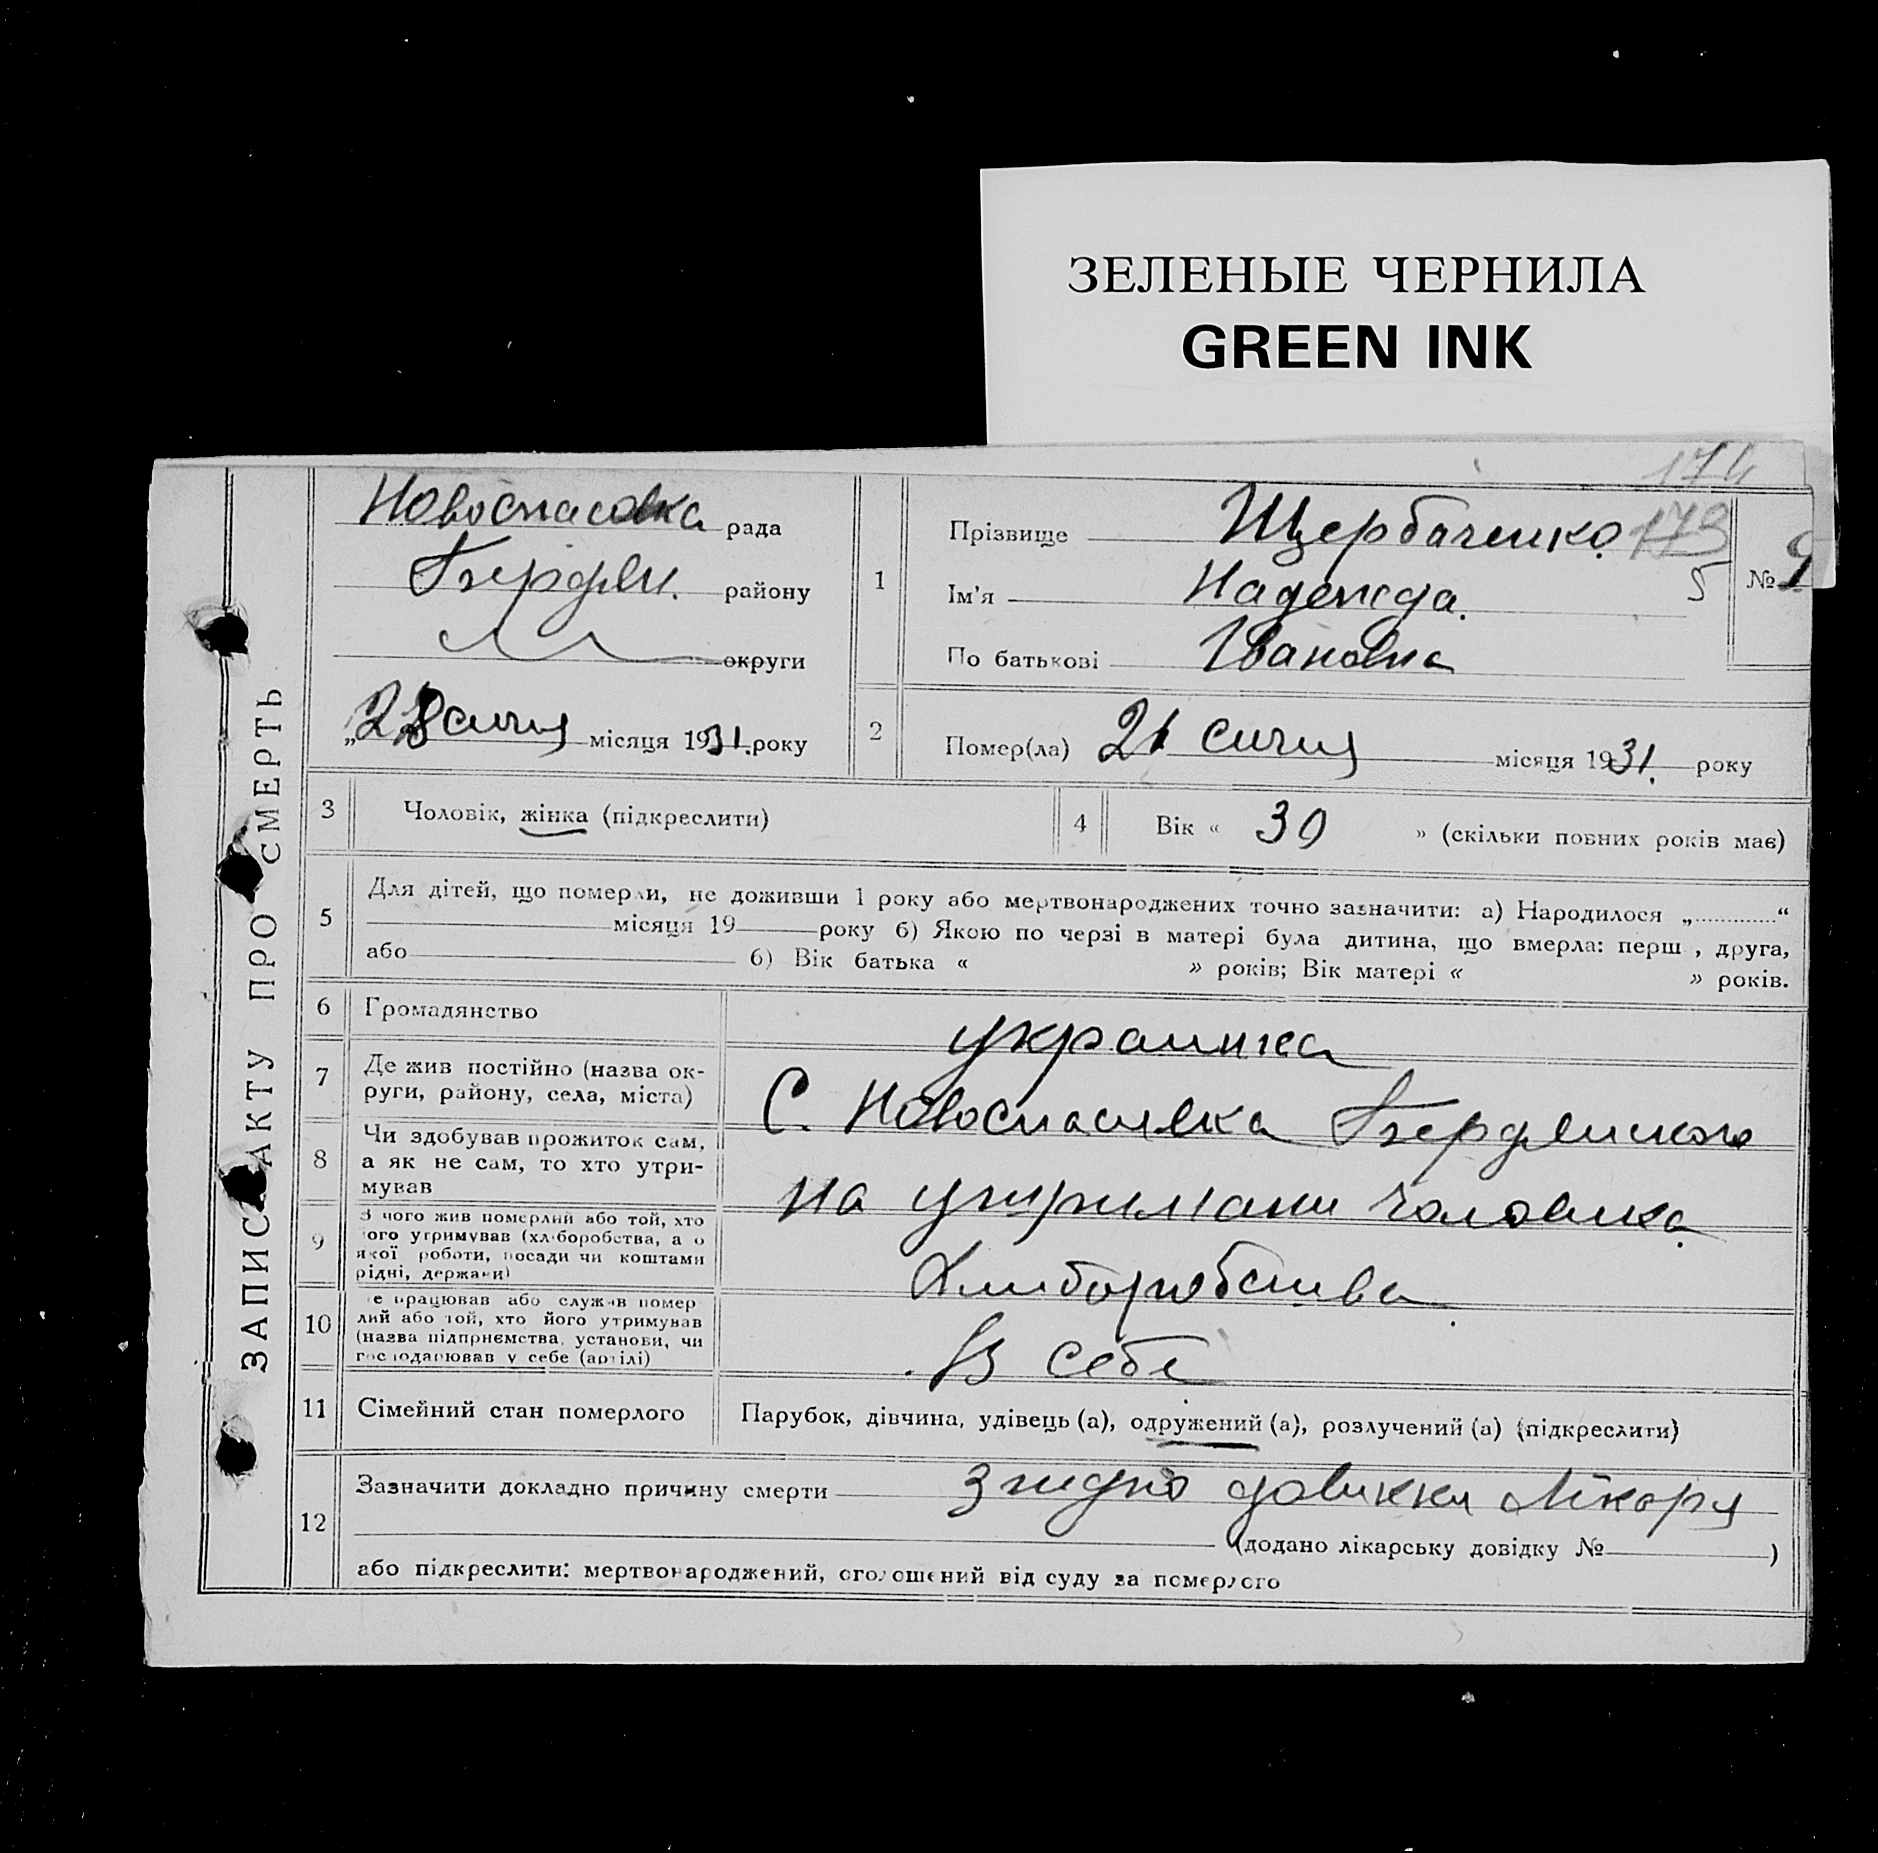 ЗЕЛЕНЫЕ ЧЕРНИЛА
GREEN INK
174
ЗАПИС АКТУ ПРО СМЕРТЬ
Новоспасовка рада
Бердян. району
округи
„28 сичня місяця 1931. року
1
Прізвище Щербаченко 173
Ім'я Надежда. 5
По батькові Івановна
№ 9
2
Помер(ла) 21 сичня місяця 1931. року
3 Чоловік, жінка (підкреслити)
4 Вік « 30 » (скільки повних років має)
5 Для дітей, що померли, не доживши 1 року або мертвонароджених точно зазначити: а) Народилося „ “
місяця 19 року б) Якою по черзі в матері була дитина, що вмерла: перш , друга,
або б) Вік батька « » років; Вік матері « » років.
6 Громадянство украинка
7 Де жив постійно (назва ок-
руги, району, села, міста) С. Новоспасивка Бердянского
8 Чи здобував прожиток сам,
а як не сам, то хто утри-
мував на утримани чоловика.
9 З чого жив померлий або той, хто
його утримував (хліборобства, а о
якої роботи, посади чи коштами
рідні, держави) Хлиборобства.
10 е працював або служив помер
лий або той, хто його утримував
(назва підприємства, установи, чи
господарював у себе (артілі) В себе
11 Сімейний стан померлого Парубок, дівчина, удівець (а), одружений (а), розлучений (а) (підкреслити)
12 Зазначити докладно причину смерти згидно довикки лікаря
(додано лікарську довідку № )
або підкреслити: мертвонароджений, оголошений від суду за померлого